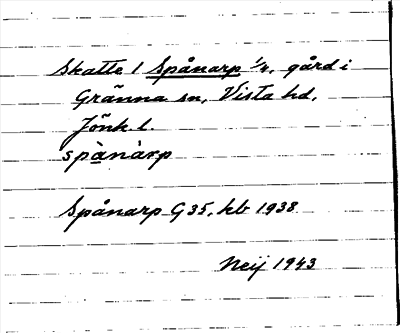 Skatte 1 Spånarp 1/4, gård i
Gränna sn, Vista hd,
Jönk. l.
spànàrp
Spånarp G 35, kb 1938
Neij 1943